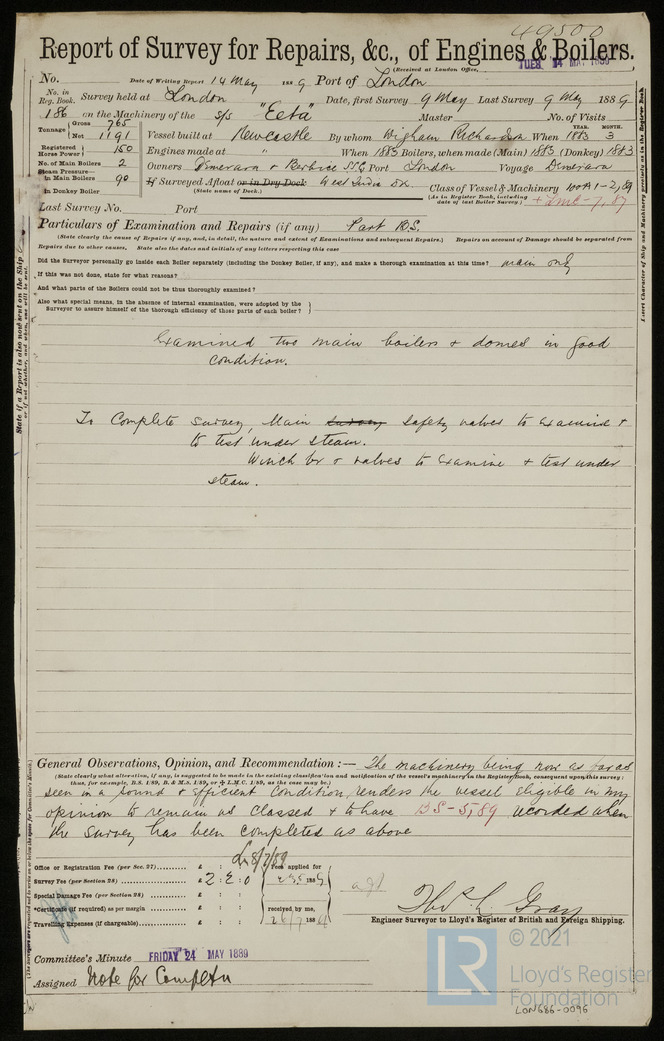 49500
Report of Survey for Repairs, &c., of Engines & Boilers.
(Received at London Office, TUES. 14 MAY 1889
No. Date of Writing Report 14 May 1889 Port of London
No. in Reg. Book. Survey held at London Date, first Survey 9 May Last Survey 9 May 1889
156 on the Machinery of the s/s "Eeta" Master No. of Visits
Tonnage Gross 765 Net 1191 Vessel built at Newcastle By whom Wigham Richardson When YEAR. 1883 MONTH. 3
Registered Horse Power 150 Engines made at " When 1883 Boilers, when made (Main) 1883 (Donkey) 1883
No. of Main Boilers 2 Owners Demerara & Berbice SSCo Port London Voyage Demerara
Steam Pressure— in Main Boilers 90 If Surveyed Afloat or in Dry Dock West India Dk
(State name of Dock.)
in Donkey Boiler Class of Vessel & Machinery 100A1-2,89
(As in Register Book, including date of last Boiler Survey.) + LMC-7,87
Last Survey No. Port
Particulars of Examination and Repairs (if any) Part B.S.
(State clearly the cause of Repairs if any, and, in detail, the nature and extent of Examinations and subsequent Repairs.) Repairs on account of Damage should be separated from
Repairs due to other causes. State also the dates and initials of any letters respecting this case
Did the Surveyor personally go inside each Boiler separately (including the Donkey Boiler, if any), and make a thorough examination at this time? main only
If this was not done, state for what reasons?
And what parts of the Boilers could not be thus thoroughly examined?
Also what special means, in the absence of internal examination, were adopted by the
Surveyor to assure himself of the thorough efficiency of those parts of each boiler?
Examined two main boilers & domes in good
condition.
To Complete Survey, Main survey safety valves to Examine &
to test under steam.
Winch br & valves to Examine & test under
steam.
General Observations, Opinion, and Recommendation :— The machinery being now as far as
(State clearly what alteration, if any, is suggested to be made in the existing classification and notification of the vessel's machinery in the Register Book, consequent upon this survey :
thus, for example, B.S. 1/89, B. & M.S. 1/89, or L.M.C. 1/89, as the case may be.)
seen in a sound & efficient condition, renders the vessel eligible in my
opinion to remain as classed & to have BS-5,89 recorded when
the survey has been completed as above
Office or Registration Fee (per Sec. 27) £ : :
Survey Fee (per Section 28) £ 2 : 2 : 0
Special Damage Fee (per Section 28) £ : :
Certificate (if required) as per margin £ : :
Travelling Expenses (if chargeable) £ : :
Fees applied for
received by me,
26/7 188
Thos. L. Gray
Engineer Surveyor to Lloyd's Register of British and Foreign Shipping.
Committee's Minute FRIDAY 24 MAY 1889
Assigned Note for Completn
State if a Report is also now sent on the Ship
Insert Character of Ship and Machinery precisely as in the Register Book.
LR
© 2021
Lloyd's Register
Foundation
LON686-0096